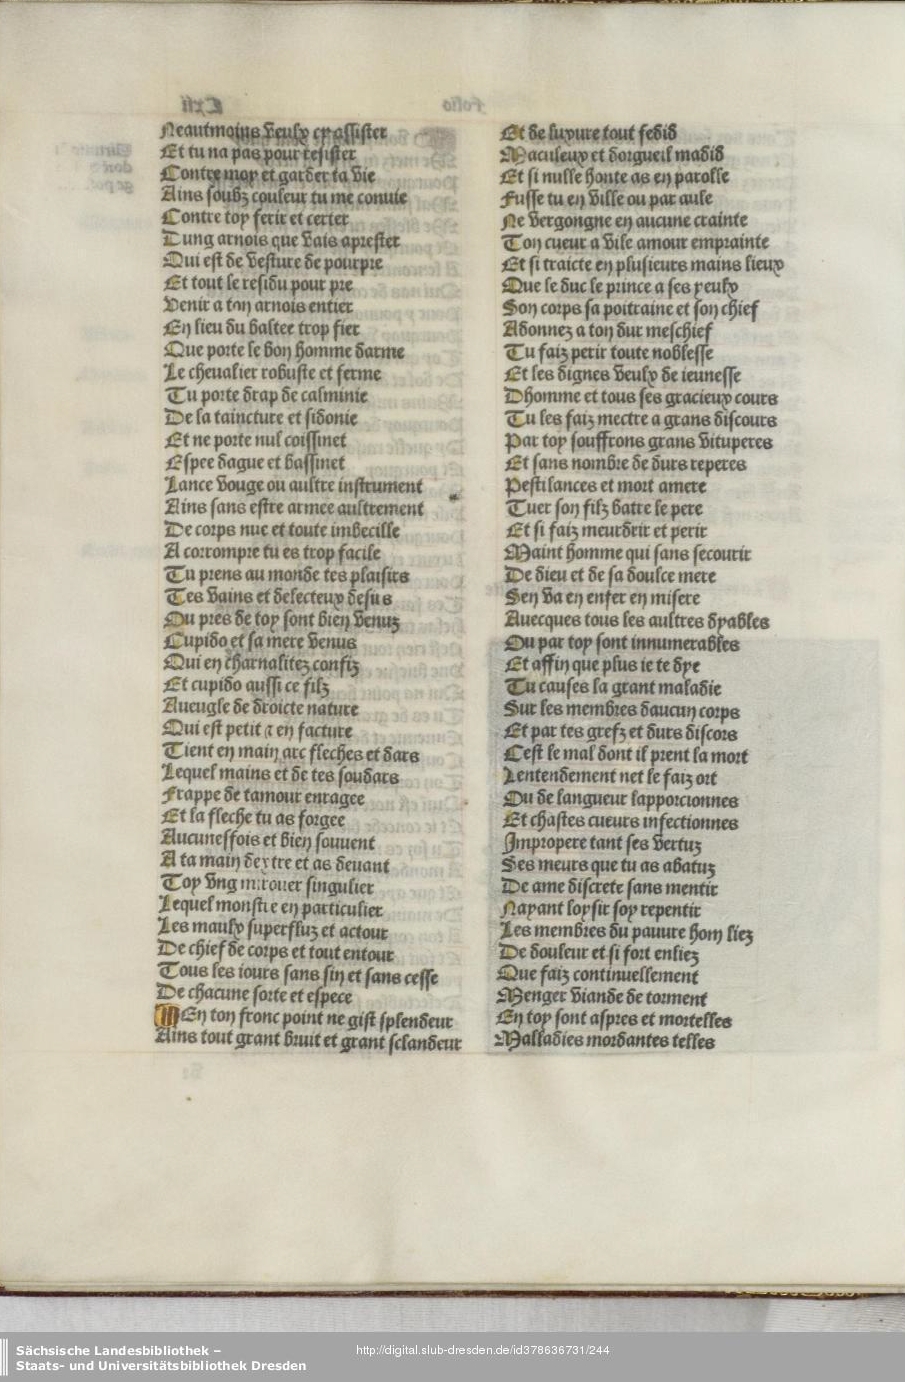 Neautmoins veulx cy assister
Et tu na pas pour resister
Contre moy et garder ta vie
Ains soubz couleur tu me convie
Contre toy ferir et certer
Dung arnois que vais aprester
Qui est de vesture de pourpre
Et tout le residu pour pre
Venir a ton arnois entier
En lieu du baster trop fier
Que porte le bon homme darme
Le chevalier robuste et ferme
Tu porte drap de calminie
De la taincture et sidonie
Et ne porte nul coissinet
Espee dague et bassinet
Lance vouge ou aultre instrument
Ains sans estre armee aultrement
De corps nue et toute imbecille
A corrompre tu es trop facile
Tu prens au monde tes plaisirs
Tes vains et delecteux desirs
Ou pres de toy sont bien venuz
Cupido et sa mere venus
Qui en charnalitez confiz
Et cupido aussi ce filz
Aueugle de droicte nature
Qui est petit a en facture
Tient en main arc fleches et dars
Lequel mains et de tes soudars
Frappe de tamour enragee
Et la fleche tu as forgee
Aucuneffois et bien souuent
A ta main dextre et as deuant
Toy vng mirouer singulier
Lequel monstre en particulier
Les maulx superfluz et actour
De chief de corps et tout entour
Tous les iours sans fin et sans cesse
De chacune sorte et espece
En ton fronc point ne gist splendeur
Ains tout grant bruit et grant sclandeur
Et de luxure tout fedid
Maculeux et dorgueil madid
Et si nulle honte as en parolle
Fusse tu en ville ou par aule
Ne vergongne en aucune crainte
Ton cueur a vile amour emprainte
Et si traicte en plusieurs mains lieux
Que le duc le prince a ses yeulx
Son corps sa poitraine et son chief
Adonnez a ton dur meschief
Tu faiz perir toute noblesse
Et les dignes veulx de ieunesse
Dhomme et tous ses gracieux cours
Tu les faiz mectre a grans discours
Par toy souffrons grans vituperes
Et sans nombre de durs reperes
Pestilances et mort amere
Tuer son filz batre le pere
Et si faiz meurdrir et perir
Maint homme qui sans secourir
De dieu et de sa doulce mere
Sen va en enfer en misere
Auecques tous les aultres dyables
Ou par toy sont innumerables
Et affin que plus ie te dye
Tu causes la grant maladie
Sur les membres daucun corps
Et par tes grefz et durs discors
Cest le mal dont il prent la mort
Lentendement net le faiz ort
Ou de langueur lapporcionnes
Et chastes cueurs infectionnes
Impropere tant ses vertuz
Ses meurs que tu as abatuz
De ame discrete sans mentir
Nayant loysir soy repentir
Les membres du pauure hom liez
De douleur et si fort enliez
Que faiz continuellement
Menger viande de torment
En toy sont aspres et mortelles
Malladies mordantes telles
Sächsische Landesbibliothek –
Staats- und Universitätsbibliothek Dresden
http://digital.slub-dresden.de/id378636731/244